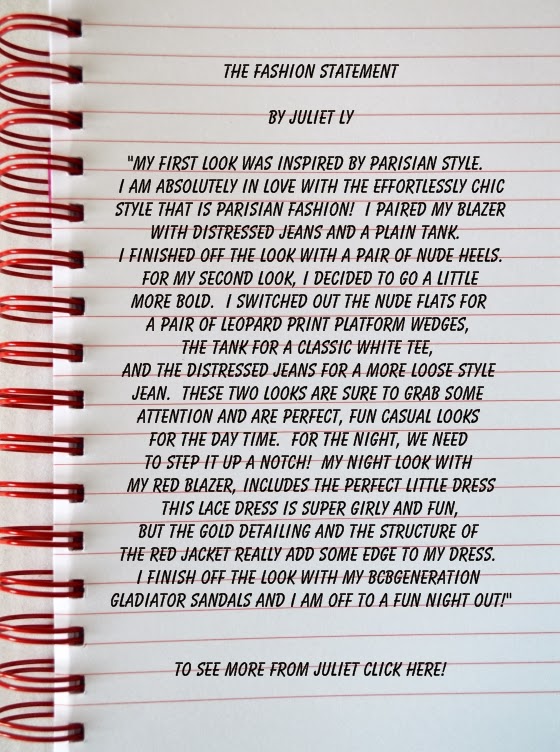 THE FASHION STATEMENT
BY JULIET LY
"MY FIRST LOOK WAS INSPIRED BY PARISIAN STYLE.
I AM ABSOLUTELY IN LOVE WITH THE EFFORTLESSLY CHIC
STYLE THAT IS PARISIAN FASHION!  I PAIRED MY BLAZER
WITH DISTRESSED JEANS AND A PLAIN TANK.
I FINISHED OFF THE LOOK WITH A PAIR OF NUDE HEELS.
FOR MY SECOND LOOK, I DECIDED TO GO A LITTLE
MORE BOLD.  I SWITCHED OUT THE NUDE FLATS FOR
A PAIR OF LEOPARD PRINT PLATFORM WEDGES,
THE TANK FOR A CLASSIC WHITE TEE,
AND THE DISTRESSED JEANS FOR A MORE LOOSE STYLE
JEAN.  THESE TWO LOOKS ARE SURE TO GRAB SOME
ATTENTION AND ARE PERFECT, FUN CASUAL LOOKS
FOR THE DAY TIME.  FOR THE NIGHT, WE NEED
TO STEP IT UP A NOTCH!  MY NIGHT LOOK WITH
MY RED BLAZER, INCLUDES THE PERFECT LITTLE DRESS
THIS LACE DRESS IS SUPER GIRLY AND FUN,
BUT THE GOLD DETAILING AND THE STRUCTURE OF
THE RED JACKET REALLY ADD SOME EDGE TO MY DRESS.
I FINISH OFF THE LOOK WITH MY BCBGENERATION
GLADIATOR SANDALS AND I AM OFF TO A FUN NIGHT OUT!"
TO SEE MORE FROM JULIET CLICK HERE!